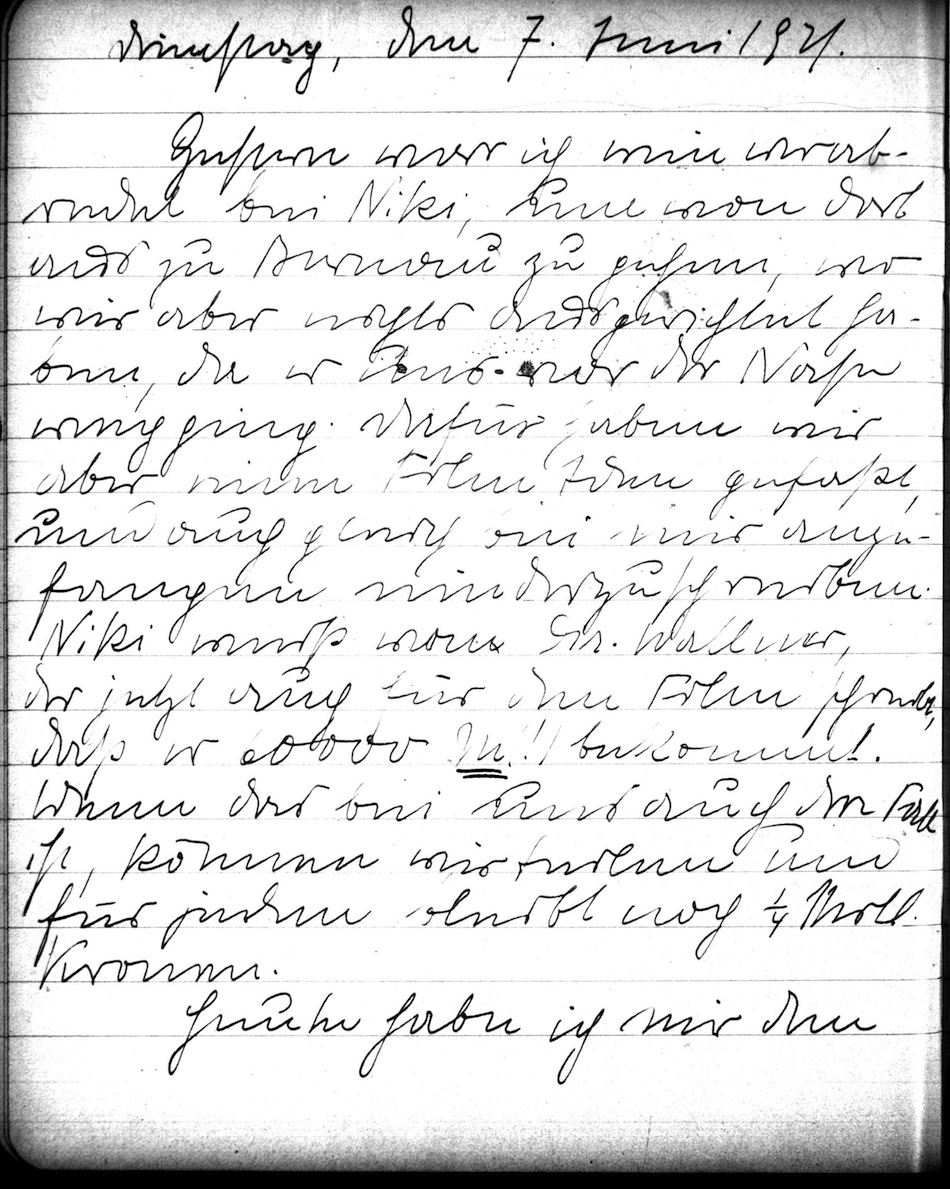 Dienstag, den 7. Juni 1921.
Gestern war ich wie verab-
redet bei Niki, um von dort
aus zu Bernau zu gehen, wo
wir aber nichts ausgerichtet ha-
ben, da er uns vor der Nase
wegging. Dafür haben wir
aber eine Film Idee gefaßt,
und auch gleich bei mir ange-
fangen niederzuschreiben.
Niki weiß von Dr. Wallner,
der jetzt auch für den Film schreibt,
daß er 60000 M!! bekommt.
Wenn das bei uns auch der Fall
ist, können wir teilen und
für jeden bleibt noch ¼ Mill.
Kronen.
Heute habe ich mir den